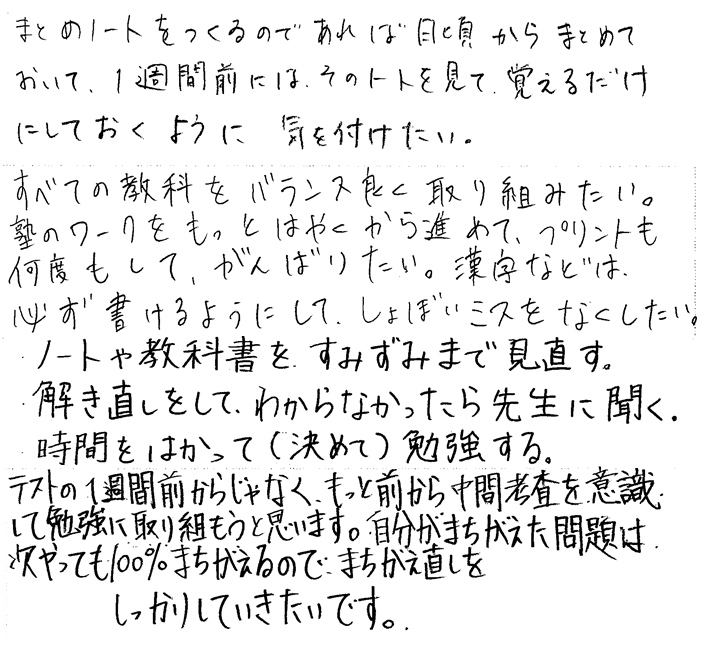 まとめノートをつくるのであれば日頃からまとめて
おいて、1週間前には、そのノートを見て、覚えるだけ
にしておくように 気を付けたい。
すべての教科をバランス良く取り組みたい。
塾のワークをもっとはやくから進めて、プリントも
何度もして、がんばりたい。漢字などは、
必ず書けるようにして、しょぼいミスをなくしたい。
・ノートや教科書を、すみずみまで見直す。
・解き直しをして、わからなかったら先生に聞く。
・時間をはかって(決めて)勉強する。
テストの1週間前からじゃなく、もっと前から中間考査を意識
して勉強に取り組もうと思います。自分がまちがえた問題は
次やっても100%まちがえるので、まちがえ直しを
しっかりしていきたいです。